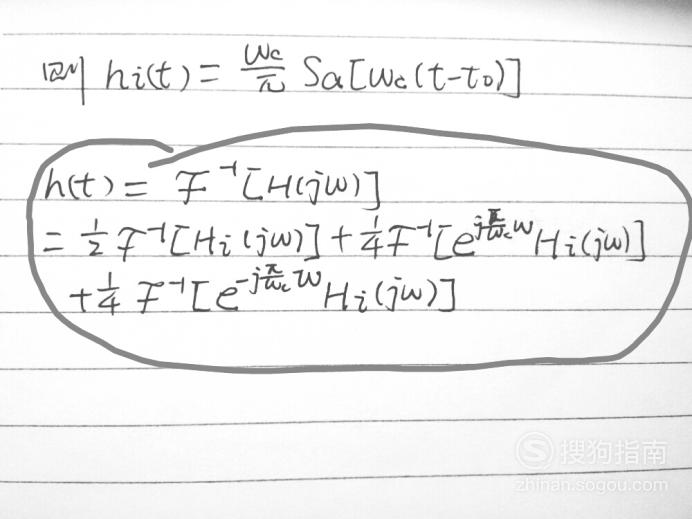 则 hi(t) = ωc/π Sa[ωc(t-t0)]
h(t) = F⁻¹[H(jω)]
= 1/2 F⁻¹[Hi(jω)] + 1/4 F⁻¹[e^{j(π/ωc)ω} Hi(jω)]
+ 1/4 F⁻¹[e^{-j(π/ωc)ω} Hi(jω)]
搜狗指南
zhinan.sogou.com